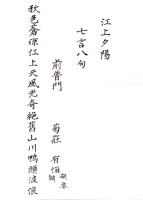 江上夕陽
七言八句
前普門
菊莊 有恒
秋色蒼涼江上天風光奇絕舊山川鴨頭波浪